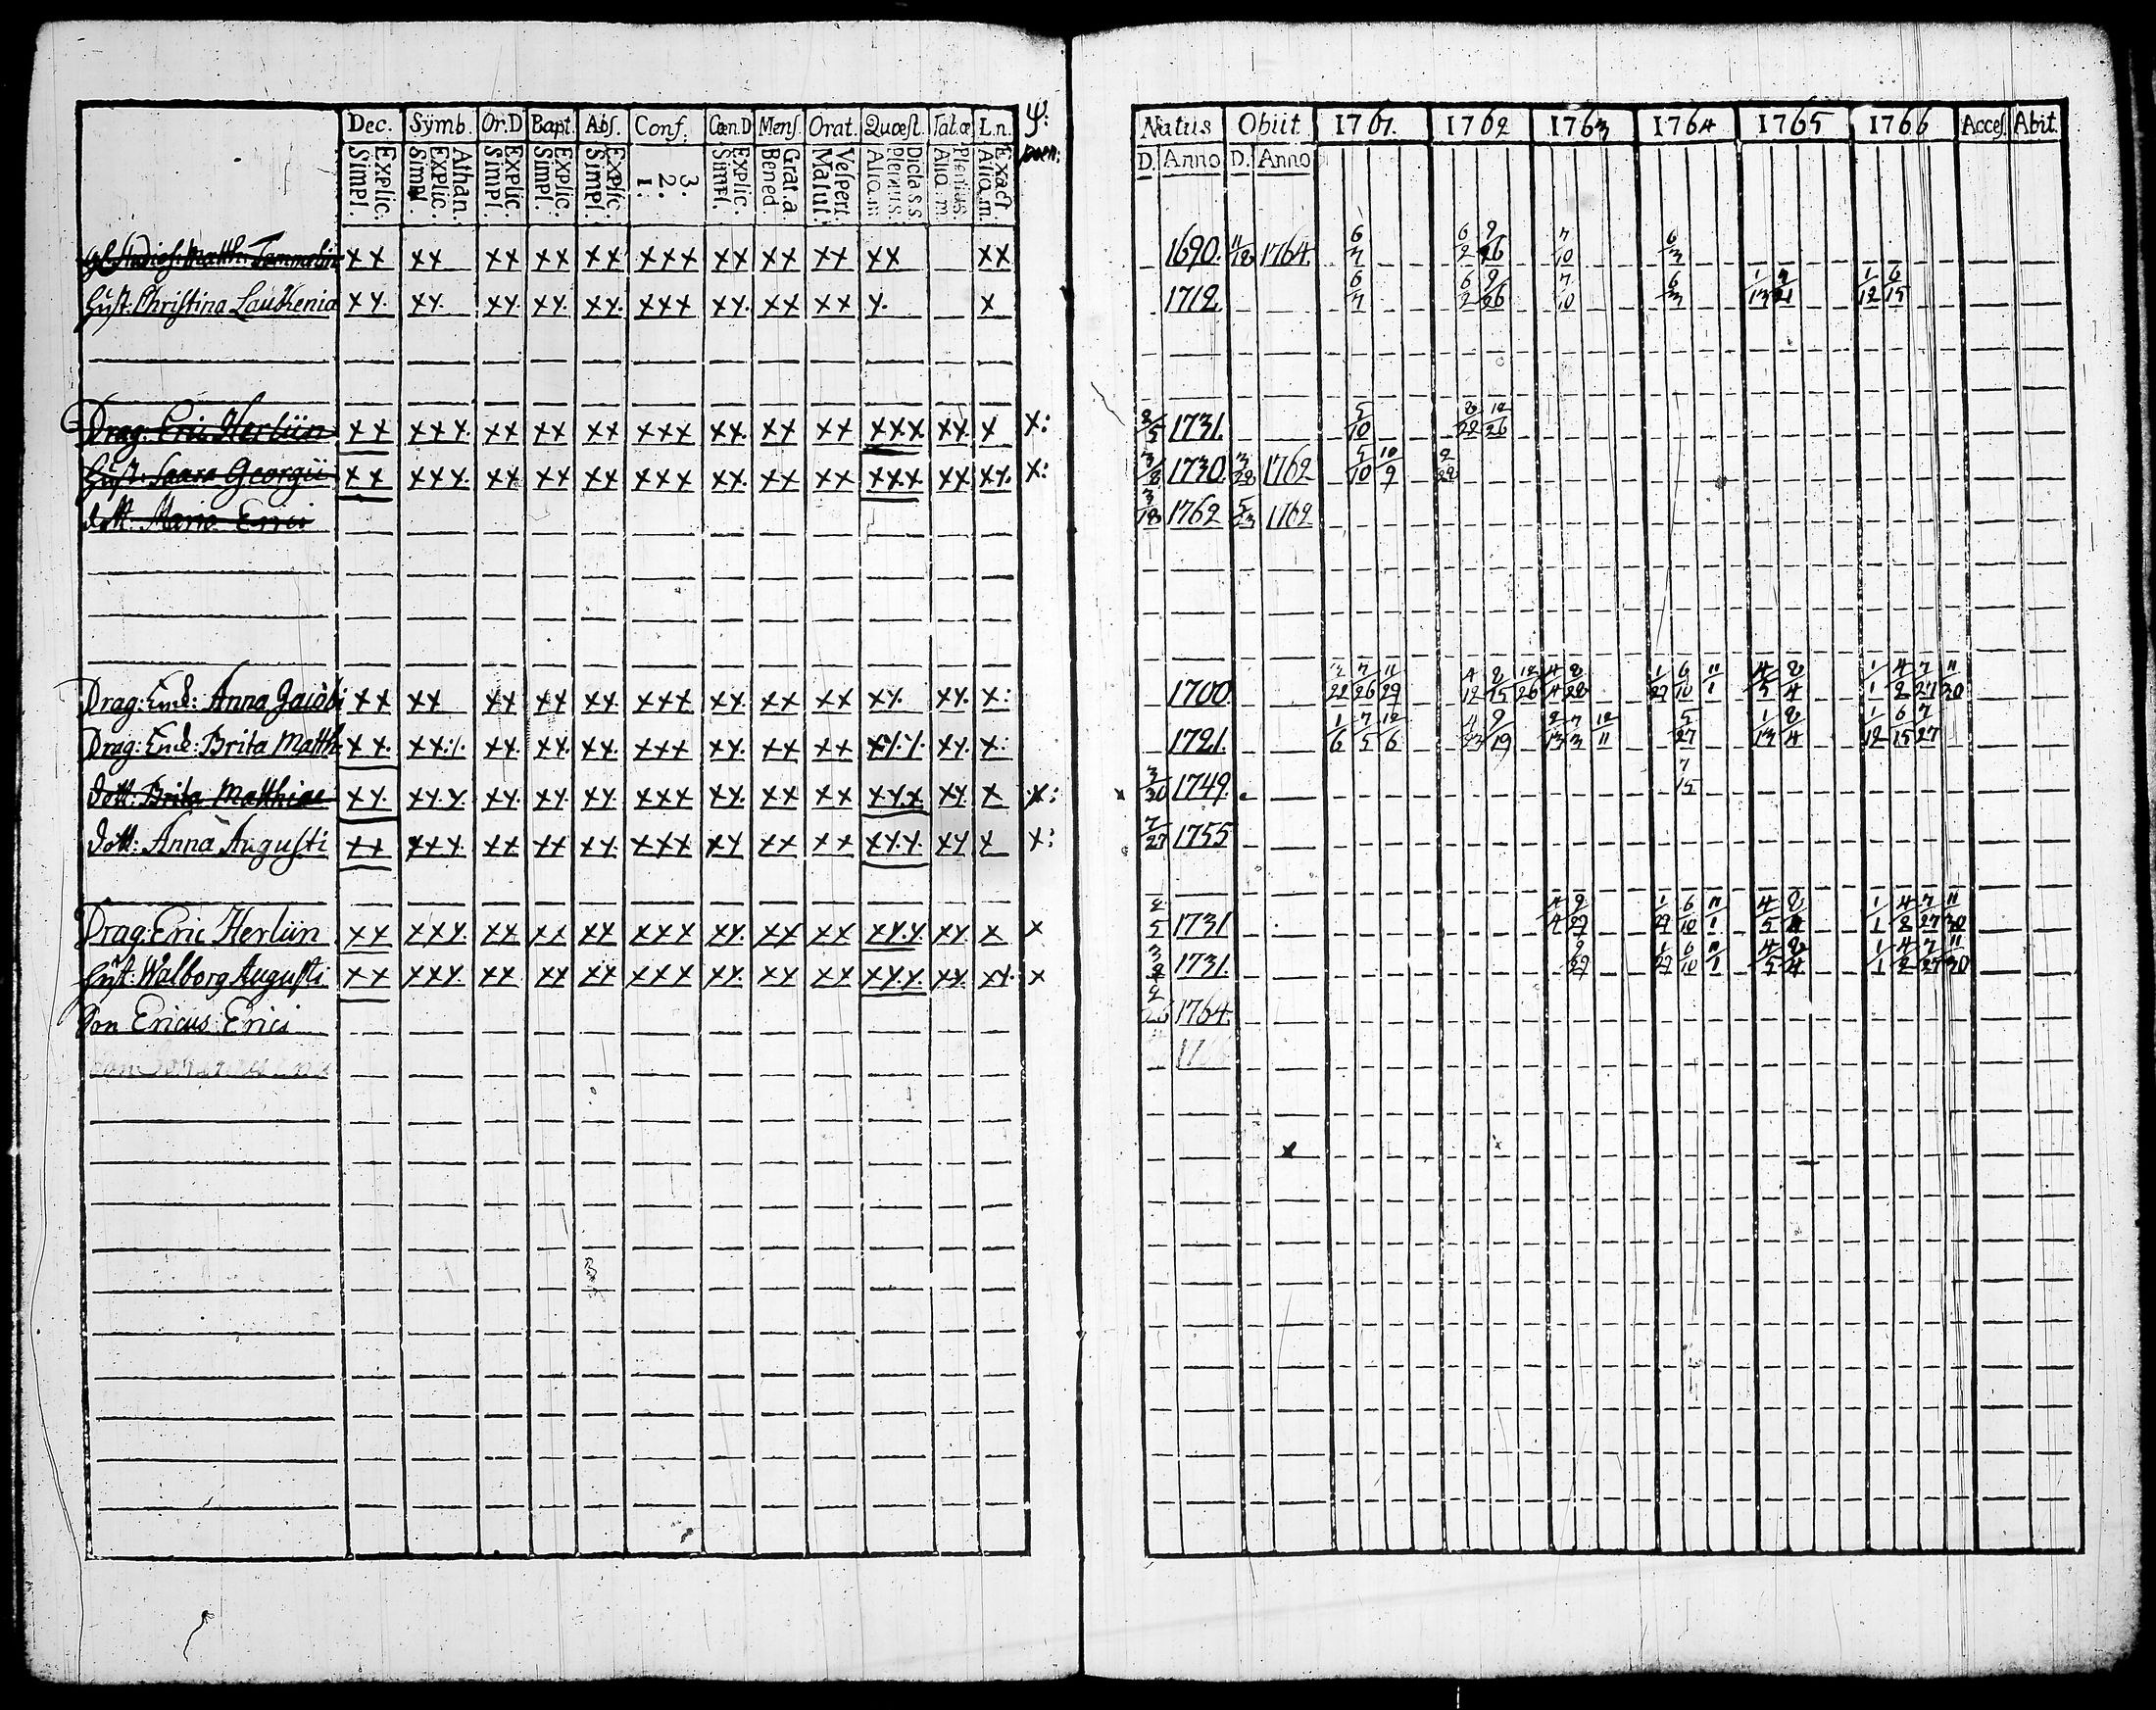 Dec. Symb. Or.D Bapt. Abs. Conf. Cœn.D Mens. Orat. Quæst. Tat.æ L.n. ψ:
Explic. Simpl. Athan. Explic. Simpl. Explic. Simpl. Explic. Simpl. Explic. Simpl. 3. 2. 1. Explic. Simpl. Grat.a Bened. Vespert. Matut. Dicta s.s. Plenius. Aliq.m Plenius Aliq.m Exact. Aliq.m. pœn:
Matth: xx xx xx xx xx xxx xx xx xx xx xx
Hust: Christina Lauthenia xx. xx. xx. xx. xx. xxx xx. xx xx x. x
Drag: Eric Herliin xx xxx. xx xx xx xxx xx. xx xx xxx. xx. x x:
Hust: Saara Georgii xx xxx. xx. xx. xx xxx xx. xx xx xxx xx xx. x:
dott: Maria Erici
Drag: Enk: Anna xx xx xx xx xx xxx xx xx xx xx. xx. x:
Drag: Enk: Brita Matth: xx. xx./. xx. xx. xx. xxx. xx. xx xx xx./. xx. x:
dott: Brita Matthiae xx. xx.x xx. xx. xx. xxx xx. xx xx xx.x xx. x x:
dott: Anna Augusti xx xxx. xx xx xx. xxx xx xx xx xx.x. xx x x:
Drag: Eric Herliin xx xxx. xx xx xx xxx xx. xx xx xx.x xx. x x
Hust. Walborg Augusti xx xxx. xx xx xx xxx xx. xx xx xx.x. xx. xx. x
Son Ericus Erici
Natus Obiit 1761. 1762 1763 1764 1765 1766 Acces. Abit.
D. Anno D. Anno
1690. 11/18 1764. 6/7 6/2 9/26 7/10 6/3
1712. 6/7 6/2 9/26 7/10 6/3 1/13 4/21 1/12 6/15
2/5 1731. 5/10 2/22 12/26
3/8 1730. 3/28 1762 5/10 10/9 2/22
3/18 1762 5/23 1762
1700. 2/22 7/26 11/29 4/12 8/15 12/26 4/4 8/28 1/29 6/10 11/1 4/5 8/4 1/1 4/2 7/27 11/30
1721. 1/6 7/5 12/6 4/23 9/19 2/13 7/3 12/11 5/27 1/13 8/4 1/12 6/15 7/27
3/30 1749. 7/15
7/27 1755
2/5 1731 4/4 9/29 1/29 6/10 11/1 4/5 8/4 1/1 4/2 7/27 11/30
3/8 1731. 9/29 1/29 6/10 11/1 4/5 8/4 1/1 4/2 7/27 11/30
1764.